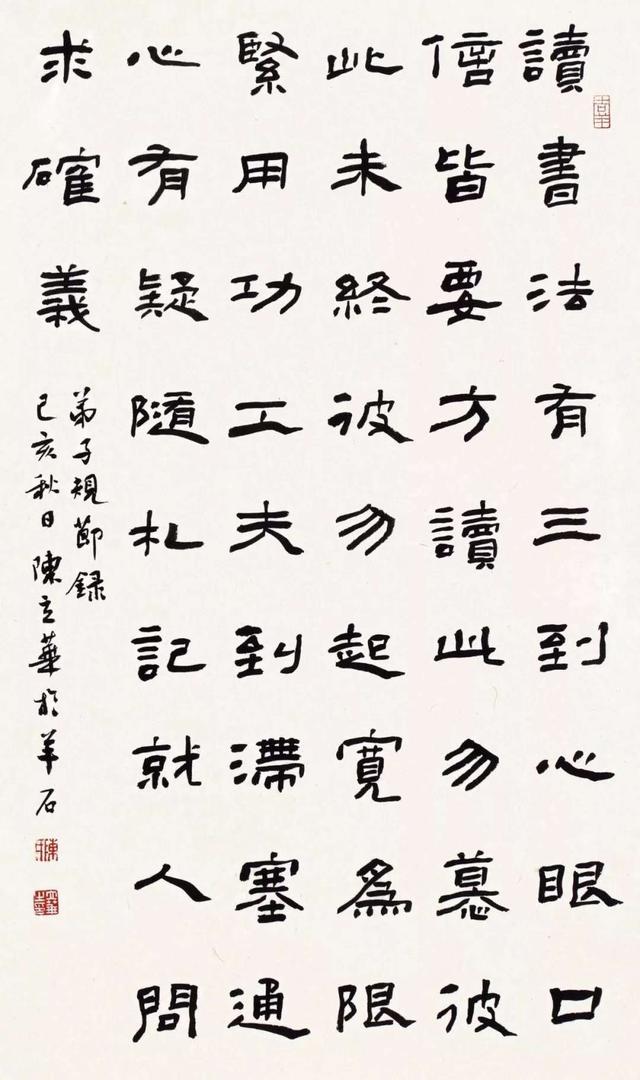 讀書法有三到心眼口
信皆要方讀此勿慕彼
此未終彼勿起寬為限
緊用功工夫到滯塞通
心有疑隨札記就人問
求確義
弟子規節録
己亥秋日陳立華於羊石